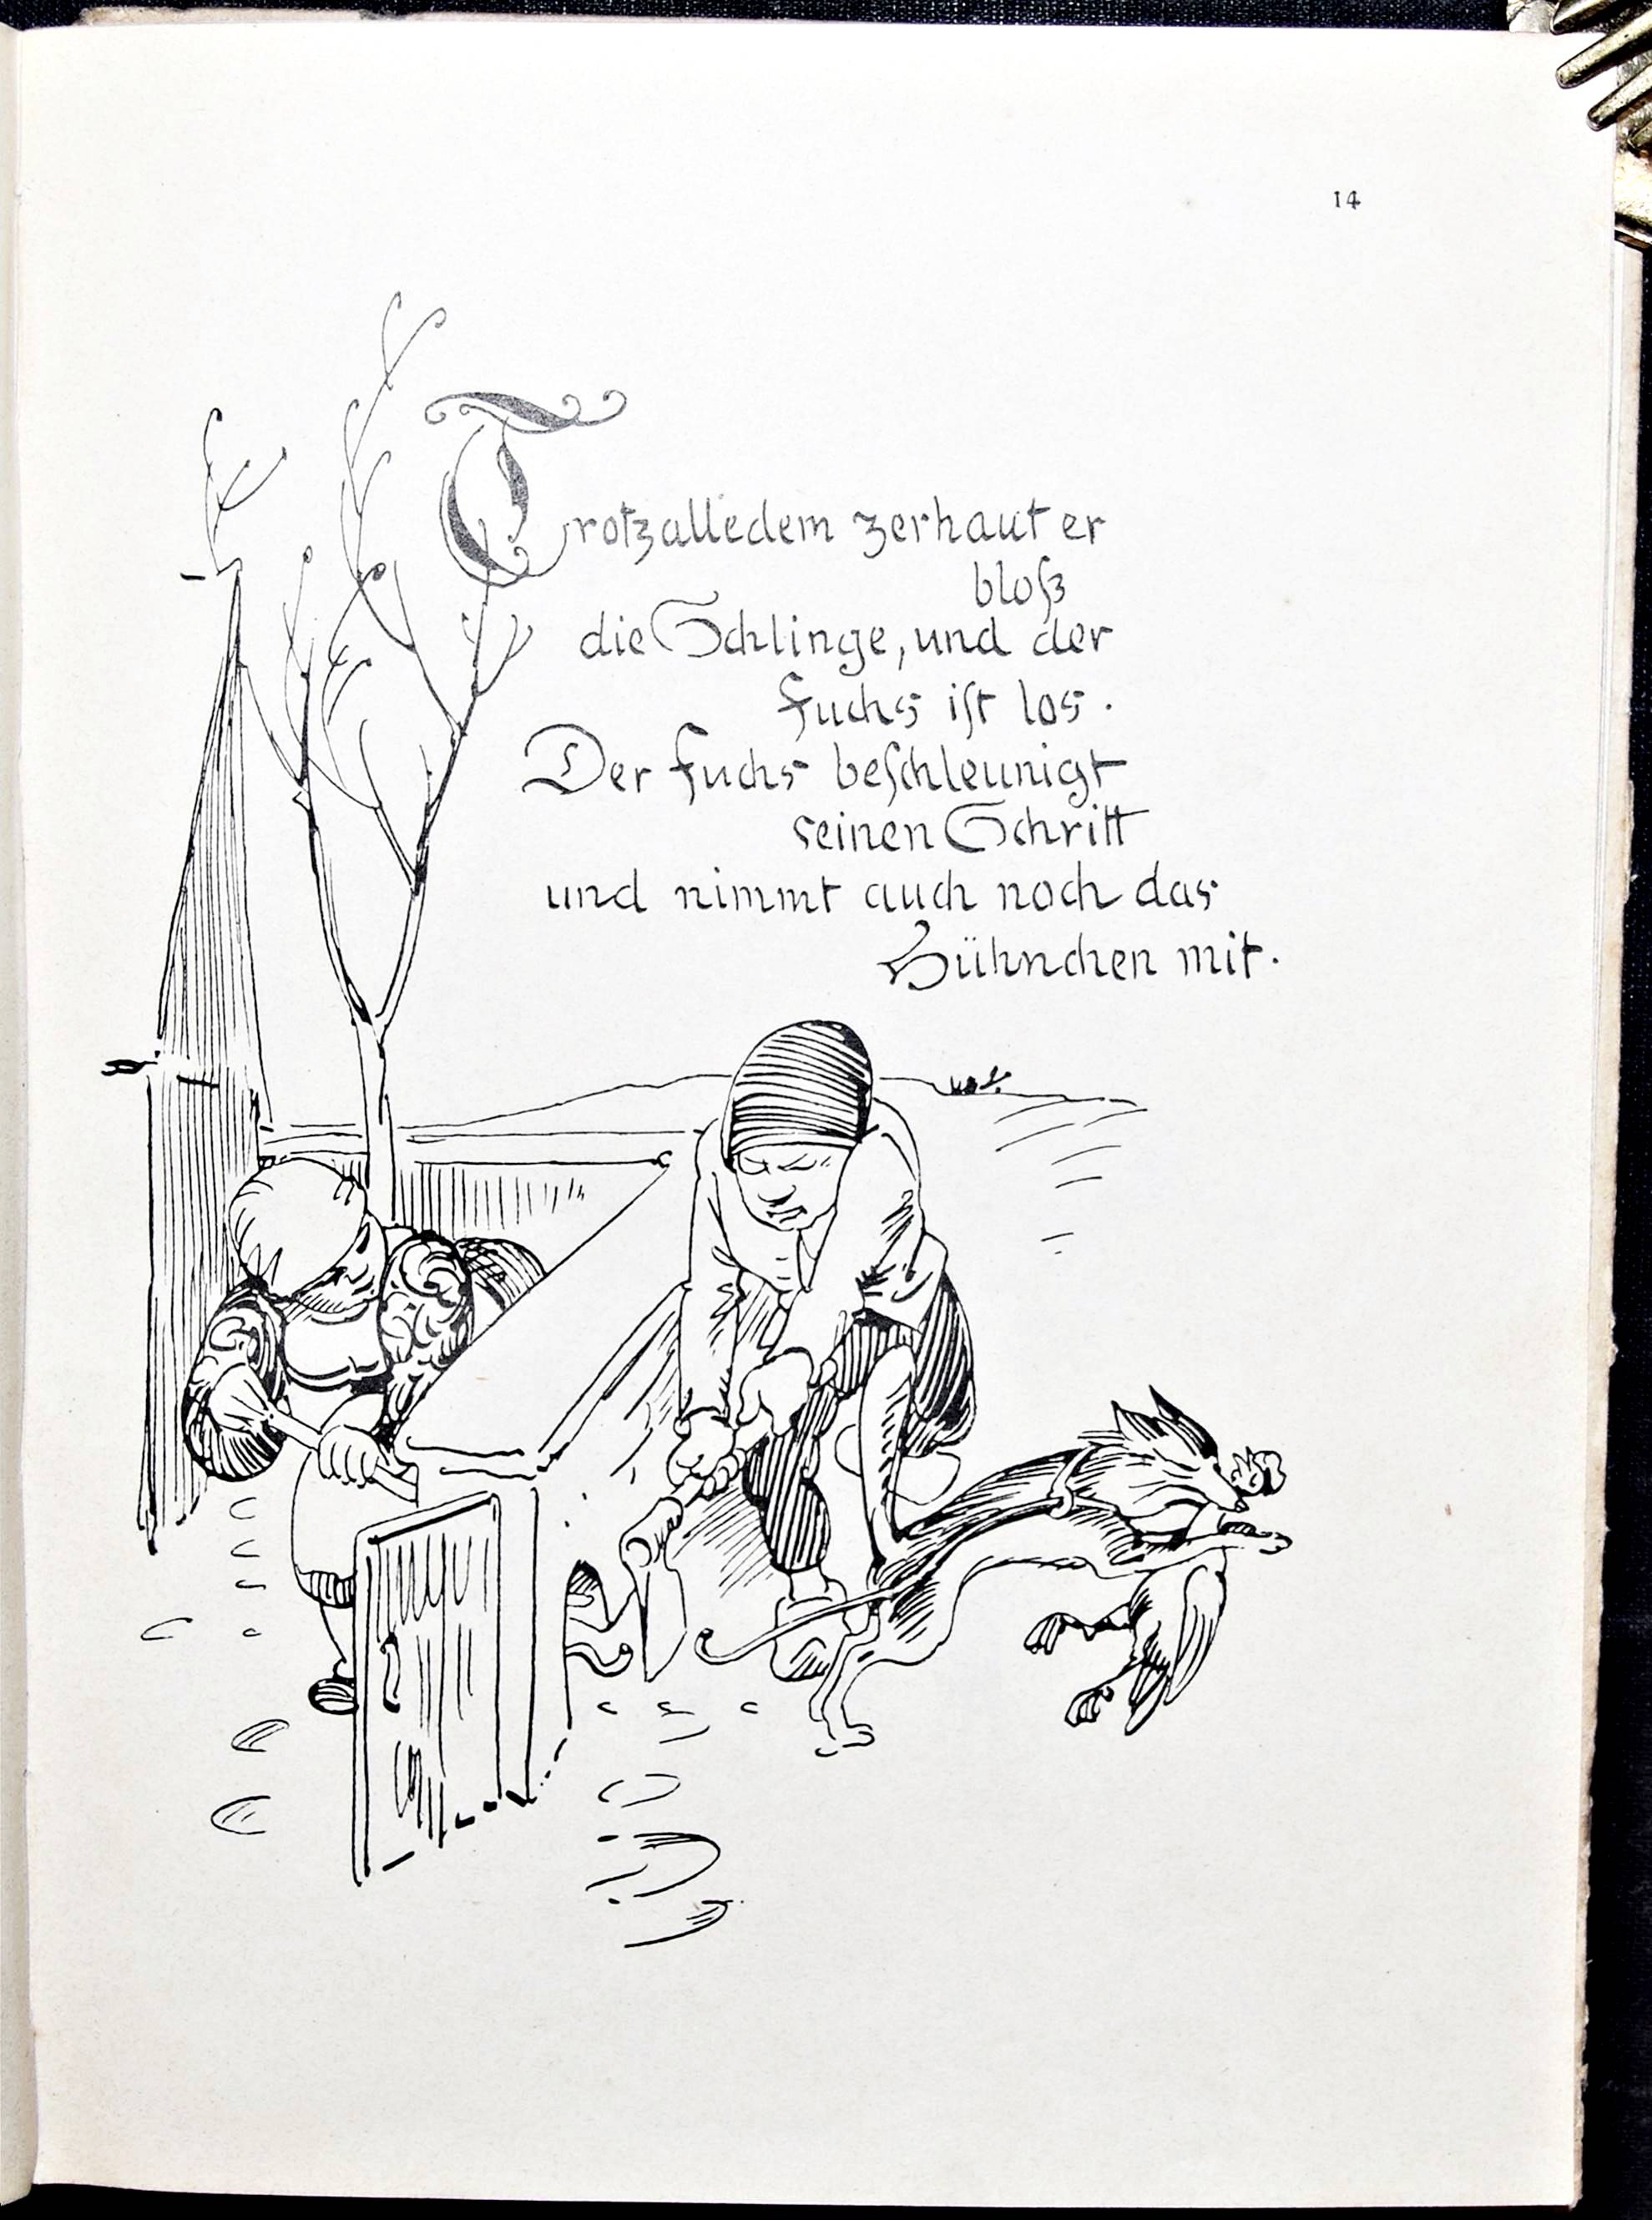 14
Trotzalledem zerhaut er
bloß
die Schlinge, und der
Fuchs ist los.
Der Fuchs beschleunigt
seinen Schritt
und nimmt auch noch das
Hühnchen mit.